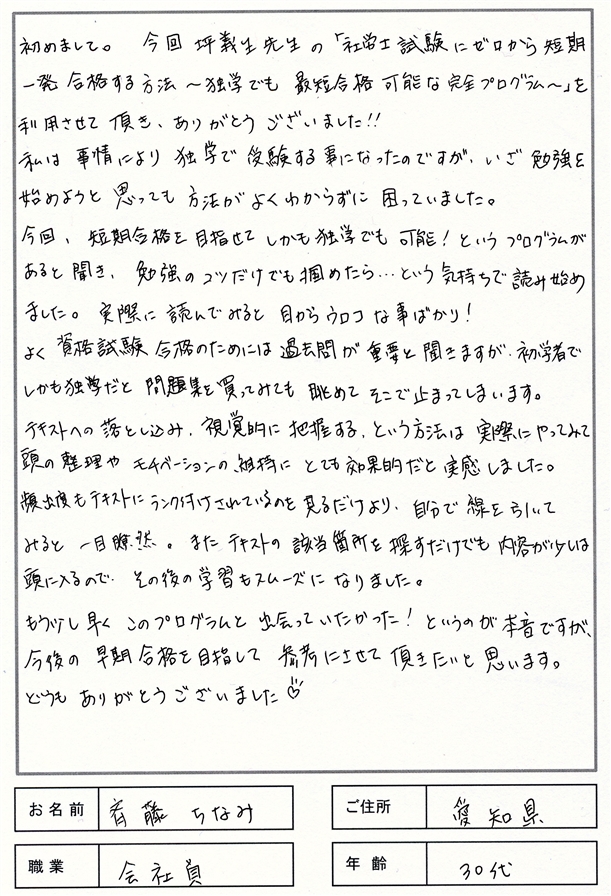 初めまして。 今回 坪義生先生の「社労士試験にゼロから短期
一発合格する方法～独学でも 最短合格可能な完全プログラム～」を
利用させて頂き、ありがとうございました!!
私は事情により独学で受験する事になったのですが、いざ勉強を
始めようと思っても方法がよくわからずに困っていました。
今回、短期合格を目指せてしかも独学でも可能！というプログラムが
あると聞き、勉強のコツだけでも掴めたら…という気持ちで読み始め
ました。実際に読んでみると目からウロコな事ばかり！
よく資格試験合格のためには過去問が重要と聞きますが、初学者で
しかも独学だと問題集を買ってみても眺めてそこで止まってしまいます。
テキストへの落とし込み、視覚的に把握する、という方法は実際にやってみて
頭の整理やモチベーションの維持にとても効果的だと実感しました。
頻出度もテキストにランク付けされているのを見るだけより、自分で線を引いて
みると一目瞭然。またテキストの該当箇所を探すだけでも内容が少しは
頭に入るので、その後の学習もスムーズになりました。
もう少し早くこのプログラムと出会っていたかった！というのが本音ですが、
今後の早期合格を目指して参考にさせて頂きたいと思います。
どうもありがとうございました♡
お名前 斉藤 ちなみ ご住所 愛知県
職業 会社員 年齢 30代